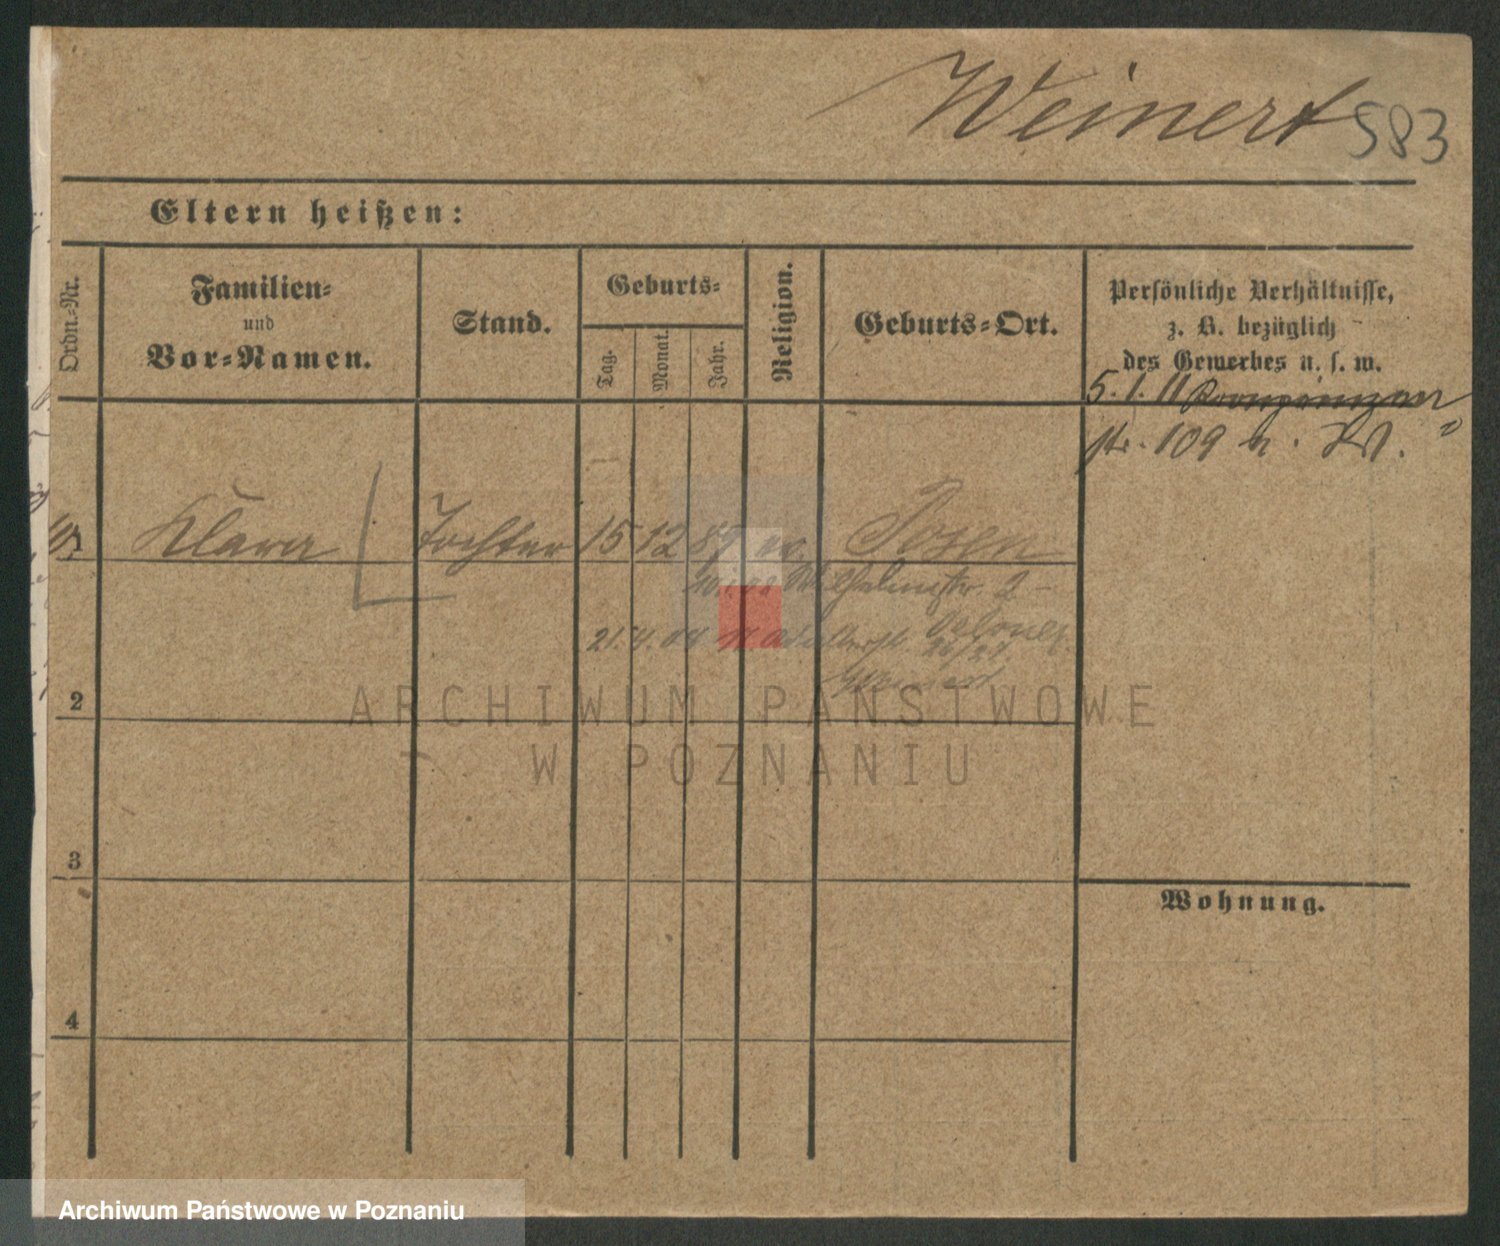 Weinert 583
Eltern heißen:
Ordn.-Nr.
Familien-
und
Vor-Namen.
Stand.
Geburts-
Tag.
Monat.
Jahr.
Religion.
Geburts-Ort.
Persönliche Verhältnisse,
z. B. bezüglich
des Gewerbes u. s. w.
5. 1. 11 Kronprinzen
str. 109
1 Klara Tochter 15 12 89 ev. Posen
Wilhelmstr. 2
21. 4. 04
26/27
2
3
4
Wohnung.
ARCHIWUM PAŃSTWOWE
W POZNANIU
Archiwum Państwowe w Poznaniu